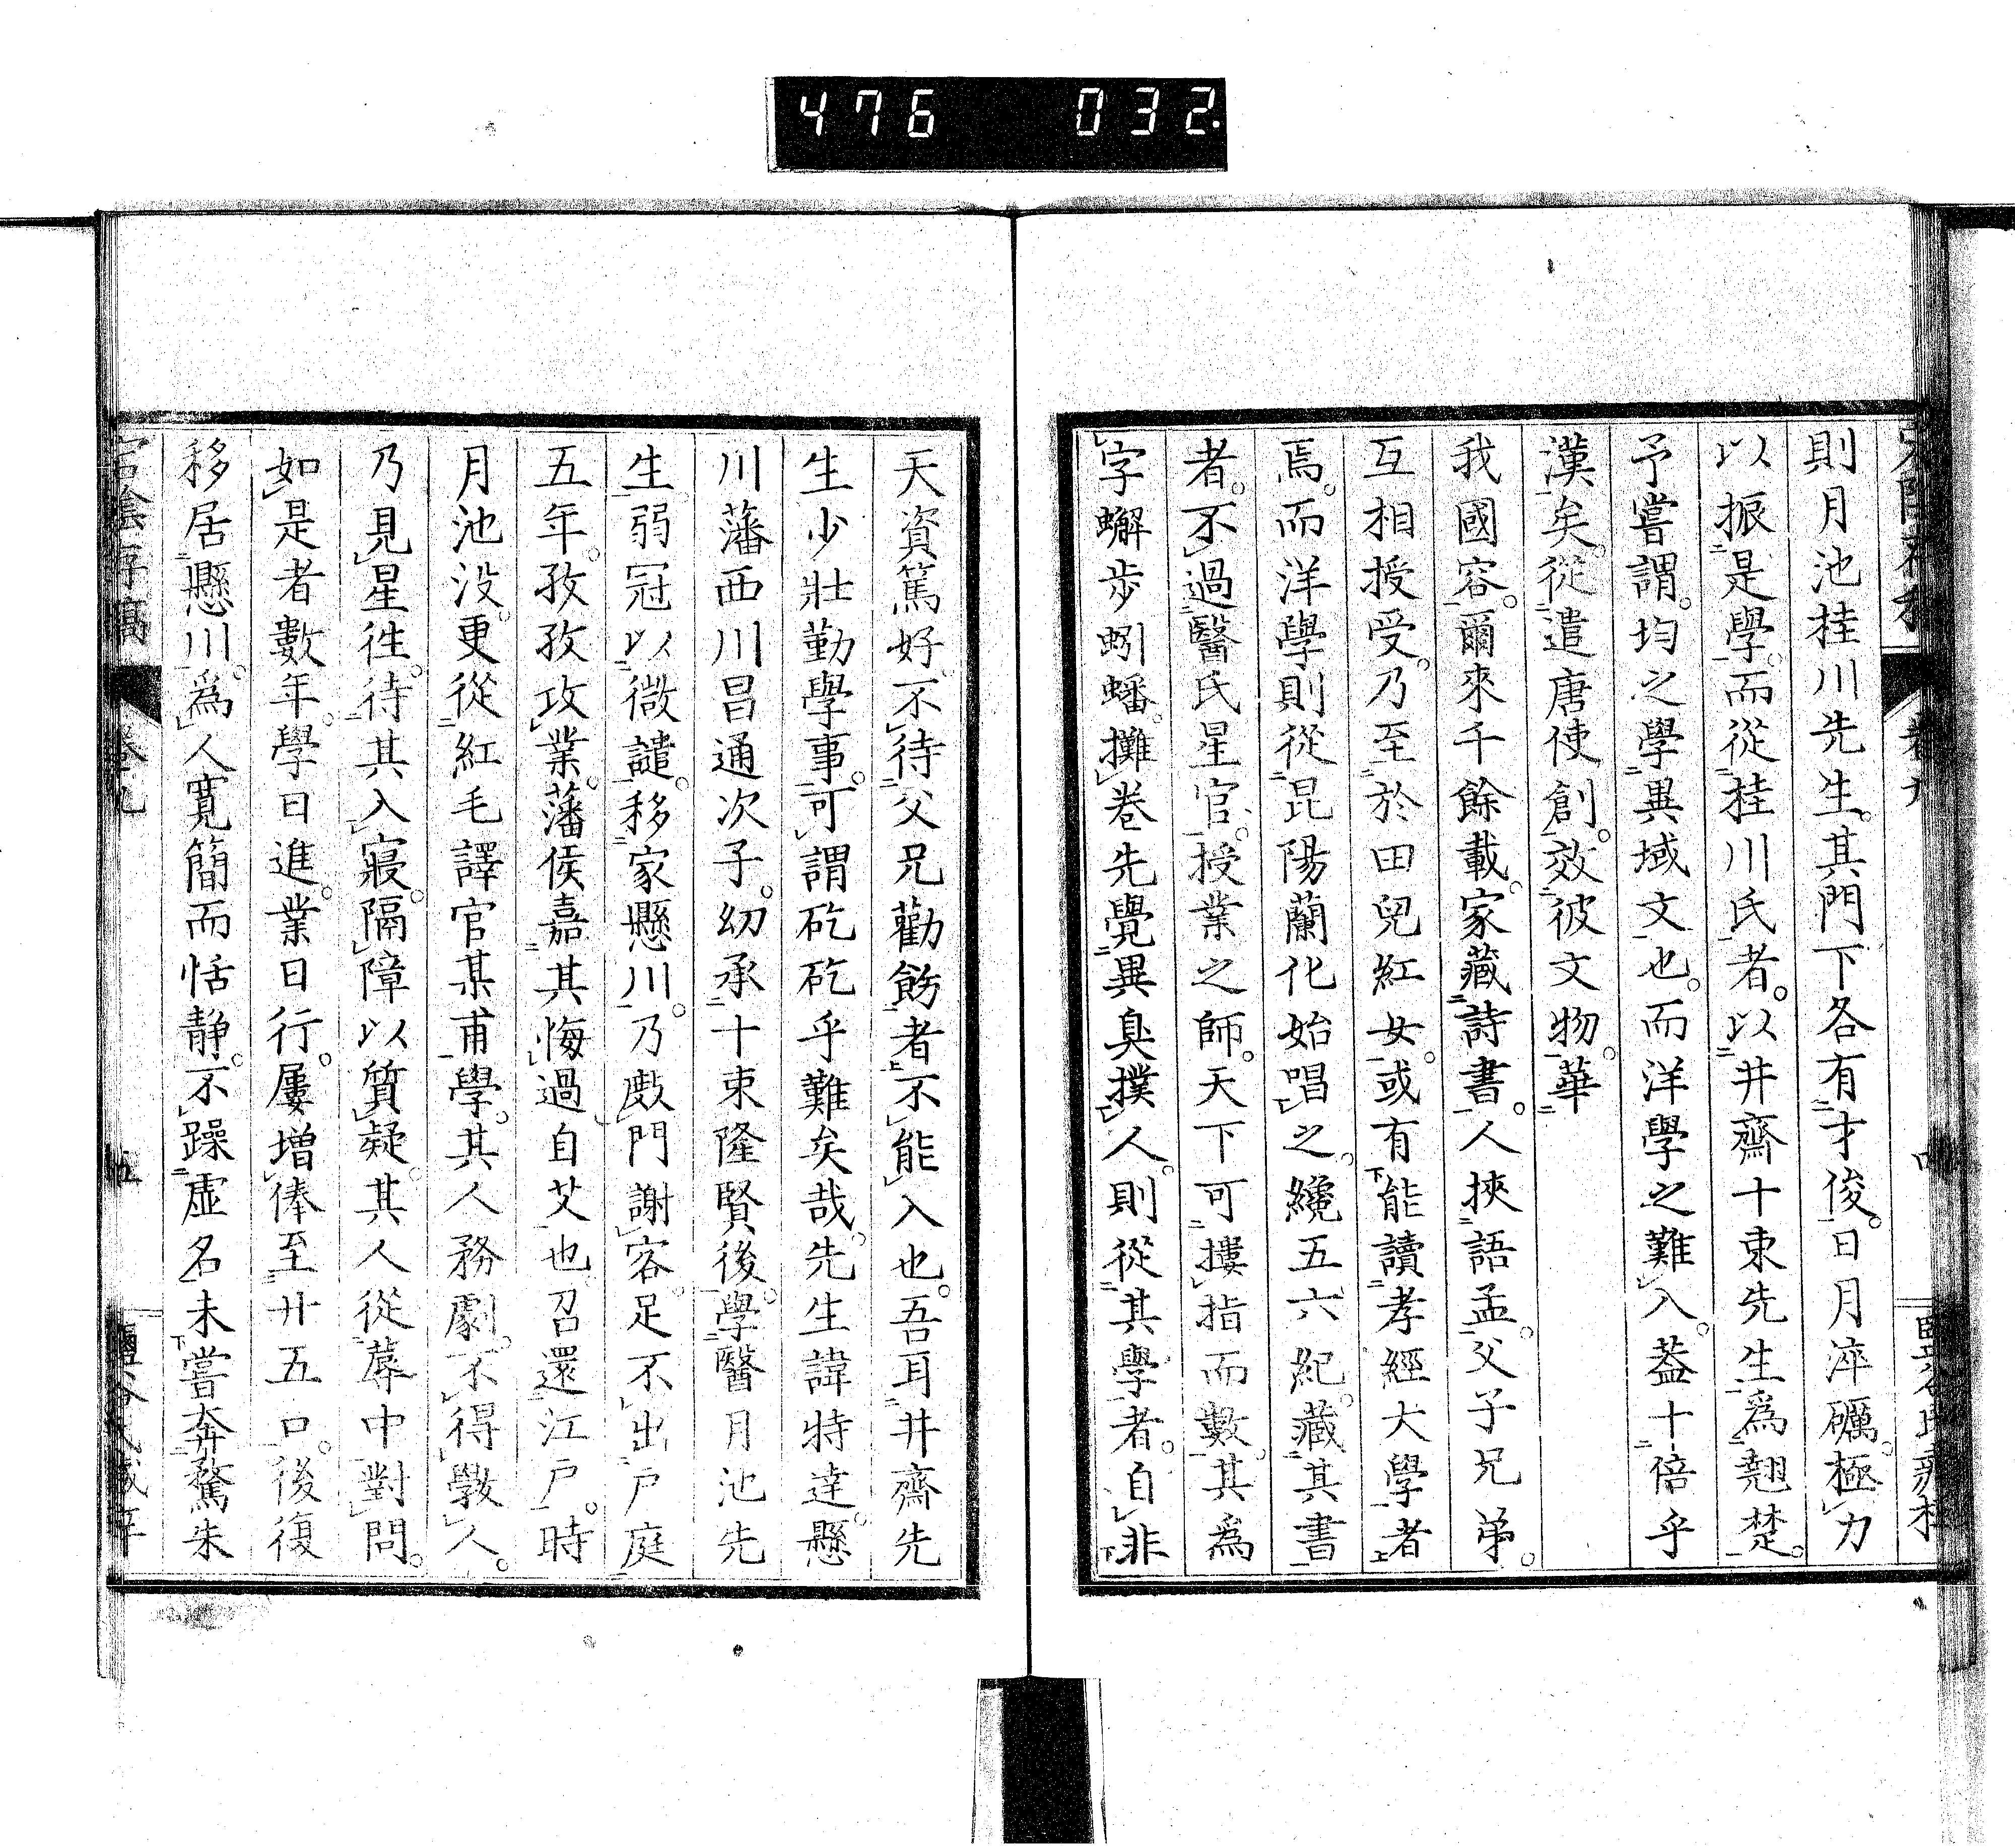 476 032
則月池桂川先生。其門下各有才俊。日月淬礪。極力
以振是學。而從桂川氏者。以井齋十束先生爲翹楚。
予嘗謂。均之學異域文也。而洋學之難入。蓋十倍乎
漢矣。從遣唐使創。效彼文物。華
我國容。爾來千餘載。家藏詩書。人挾語孟。父子兄弟。
互相授受。乃至於田兒紅女。或有能讀孝經大學者
焉。而洋學則從昆陽蘭化始唱之。纔五六紀。藏其書
者。不過醫氏星官。授業之師。天下可摟指而數。其爲
字蠏步蚓蟠。攤卷先覺異臭撲人。則從其學者。自非
天資篤好。不待父兄勸飭者。不能入也。吾耳井齋先
生少壯勤學事。可謂矻矻乎難矣哉。先生諱特達。懸
川藩西川昌通次子。幼承十束隆賢後。學醫月池先
生。弱冠以微譴。移家懸川。乃𢾾門謝客。足不出戶庭
五年。孜孜攻業。藩侯嘉其悔過自艾也。召還江戶。時
月池没。更從紅毛譯官某甫學。其人務劇。不得教人。
乃見星往。待其入寢。隔障以質疑。其人從蓐中對問。
如是者數年。學日進。業日行。屢增俸至廿五口。後復
移居懸川。爲人寬簡而恬靜。不躁虛名未嘗奔騖朱
宕陰存稿 卷九 五